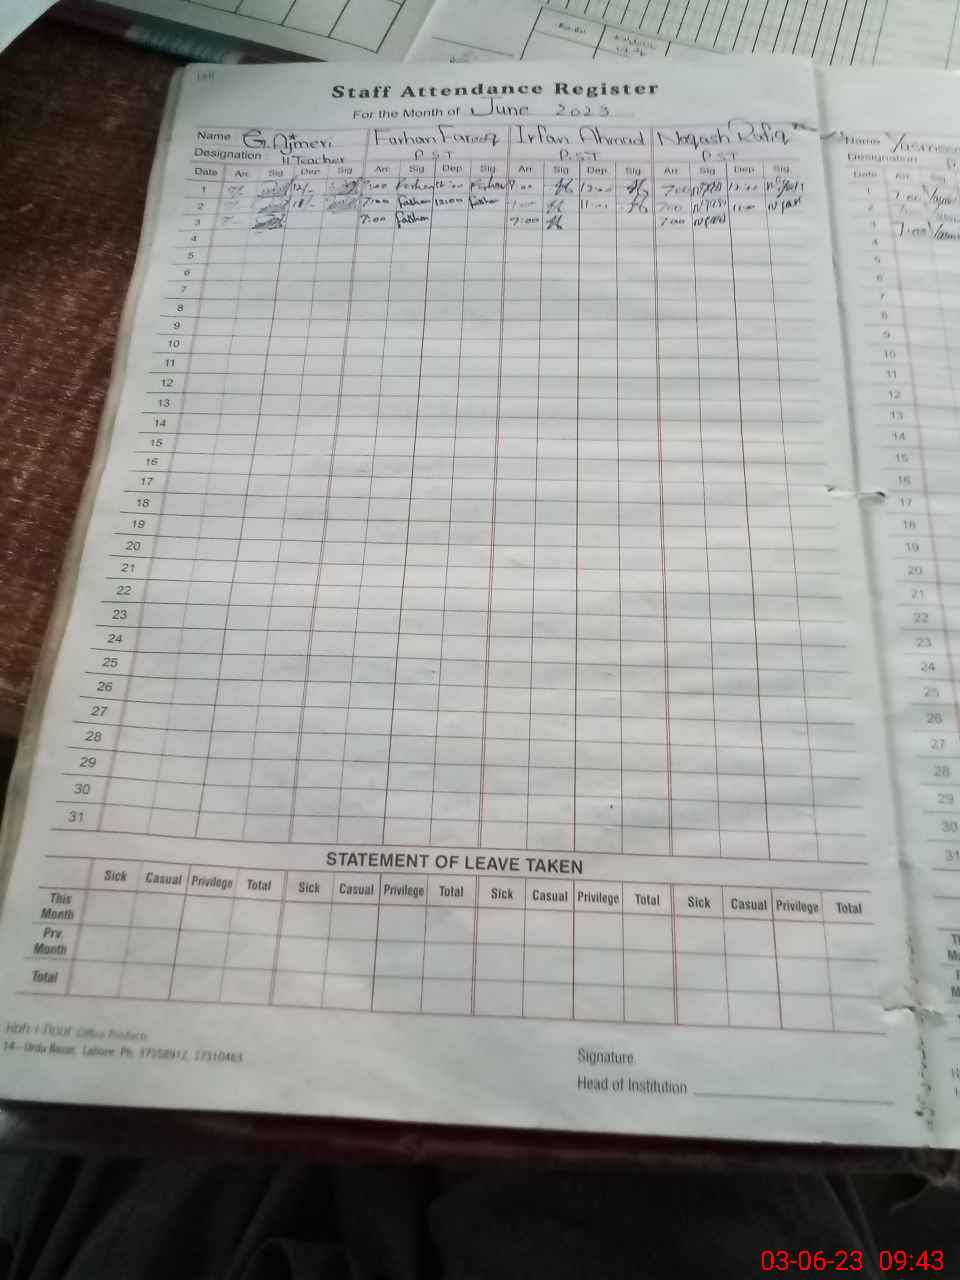 Staff Attendance Register
For the Month of June 2023
Name G. Ajmeri Farhan Farooq Irfan Ahmad Naqash Rafiq
Designation : H Teacher P.S.T P.S.T P.S.T
Date Arr. Sig. Dep. Sig. Arr. Sig Dep. Sig. Arr. Sig. Dep. Sig Arr. Sig Dep. Sig.
1 7/- 12/- 7:00 Farhan 12:00 Farhan 7:00 12:00 7:00 12:00
2 7/- 11/- 7:00 Farhan Farhan 11:00 7:00 11:00
3 7/- 7:00 Farhan 7:00 7:00
4
5
6
7
8
9
10
11
12
13
14
15
16
17
18
19
20
21
22
23
24
25
26
27
28
29
30
31
STATEMENT OF LEAVE TAKEN
Sick Casual Privilege Total Sick Casual Privilege Total Sick Casual Privilege Total Sick Casual Privilege Total
This Month
Prv. Month
Total
Koh-i-Noor Office Products
14-Urdu Bazar, Lahore. Ph: 37358912, 37310463
Signature
Head of Institution
Name
Designation
Date Arr. Sig
1
2
3 7:00
4
5
6
7
8
9
10
11
12
13
14
15
16
17
18
19
20
21
22
23
24
25
26
27
28
29
30
31
03-06-23 09:43